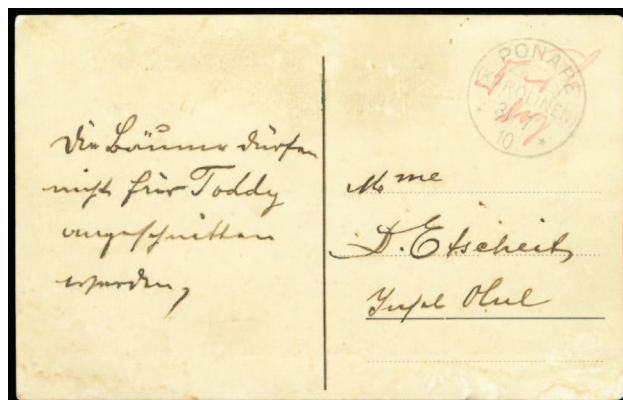 Die Bäume dürfen
nicht für Toddy
angeschnitten
werden,
PONAPE
(KAROLINEN)
10
Mme
D. Etscheit,
Insel